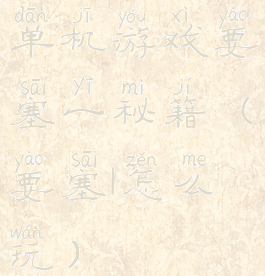 dān jī yóu xì yào
单机游戏要
sāi yī mì jí
塞一秘籍（
yào sāi zěn me
要塞1怎么
wán
玩）